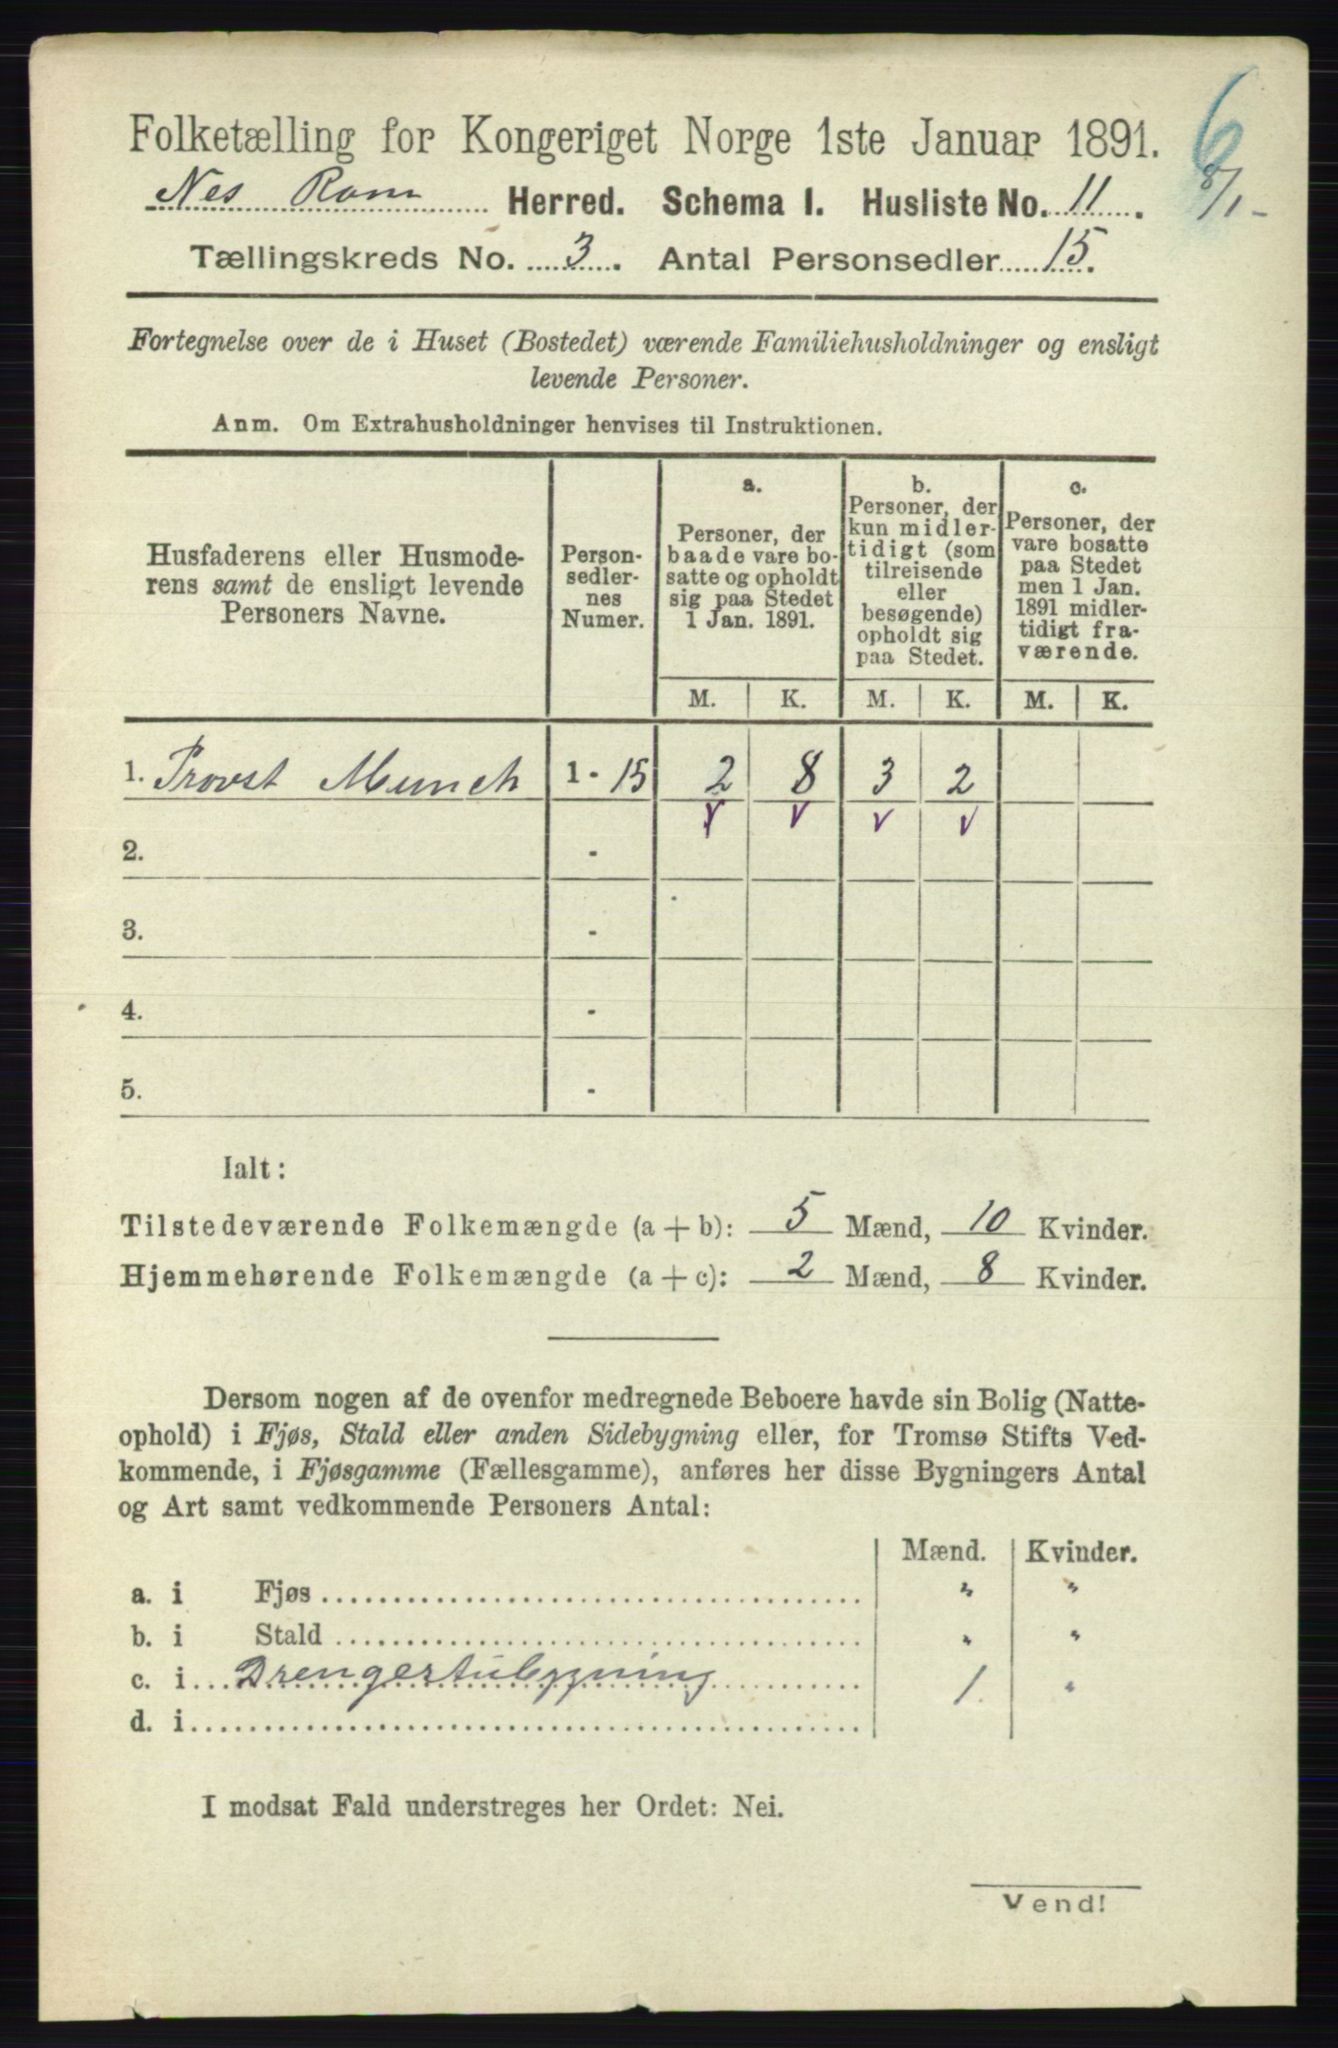 6
Folketælling for Kongeriget Norge 1ste Januar 1891.
Nes Rom Herred. Schema I. Husliste No. 11.
8/1-
Tællingskreds No. 3. Antal Personsedler 15.
Fortegnelse over de i Huset (Bostedet) værende Familiehusholdninger og ensligt
levende Personer.
Anm. Om Extrahusholdninger henvises til Instruktionen.
Husfaderens eller Husmode-
rens samt de ensligt levende
Personers Navne.
Person-
sedler-
nes
Numer.
a.
Personer, der
baade vare bo-
satte og opholdt
sig paa Stedet
1 Jan. 1891.
b.
Personer, der
kun midler-
tidigt (som
tilreisende
eller
besøgende)
opholdt sig
paa Stedet.
c.
Personer, der
vare bosatte
paa Stedet
men 1 Jan.
1891 midler-
tidigt fra-
værende.
M. K. M. K. M. K.
1. Provst Munch 1 - 15 2 8 3 2
2. -
3. -
4. -
5. -
Ialt:
Tilstedeværende Folkemængde (a + b): 5 Mænd, 10 Kvinder.
Hjemmehørende Folkemængde (a + c): 2 Mænd, 8 Kvinder.
Dersom nogen af de ovenfor medregnede Beboere havde sin Bolig (Natte-
ophold) i Fjøs, Stald eller anden Sidebygning eller, for Tromsø Stifts Ved-
kommende, i Fjøsgamme (Fællesgamme), anføres her disse Bygningers Antal
og Art samt vedkommende Personers Antal:
Mænd. Kvinder.
a. i Fjøs " "
b. i Stald " "
c. i Drengestubygning 1. "
d. i
I modsat Fald understreges her Ordet: Nei.
Vend!